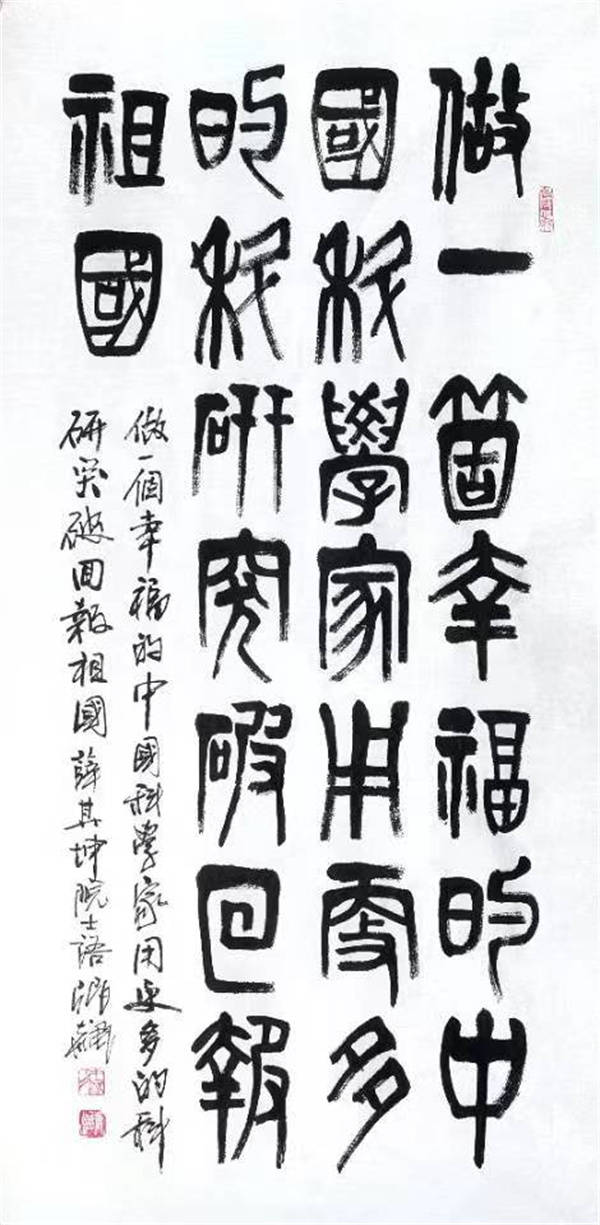 做一箇幸福的中
國科學家用更多
的科研突破回報
祖國
做一個幸福的中國科学家用更多的科
研突破回報祖國薛其坤院士語